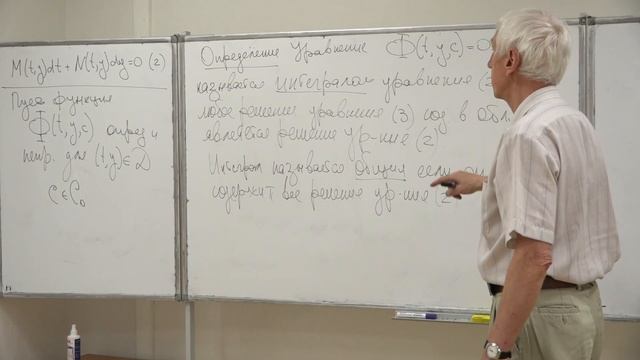 M(t,y)dt + N(t,y)dy=0 (2)
Пусть функция
Ф(t,y,c) опред и
непр. для (t,y)∈D
c∈C₀
Определение Уравнение Ф(t,y,c)=0
называется интегралом уравнения (2
любое решение уравнения (3) в обл
является решение ур-ние (2)
Интеграл называется общим если он
содержит все решение ур-ние (2